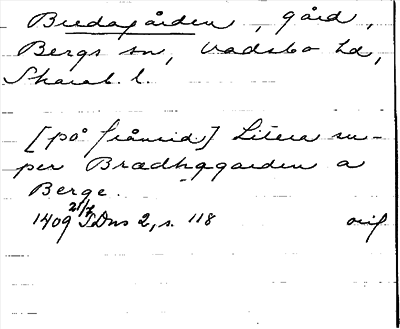 Bredagården, gård,
Bergs sn, Vadsbo hd,
Skarab. l.
[på frånsid.] Litera su-
per Brædhggarden a
Berge.
1409 21/7 SDns 2, s. 118 orig